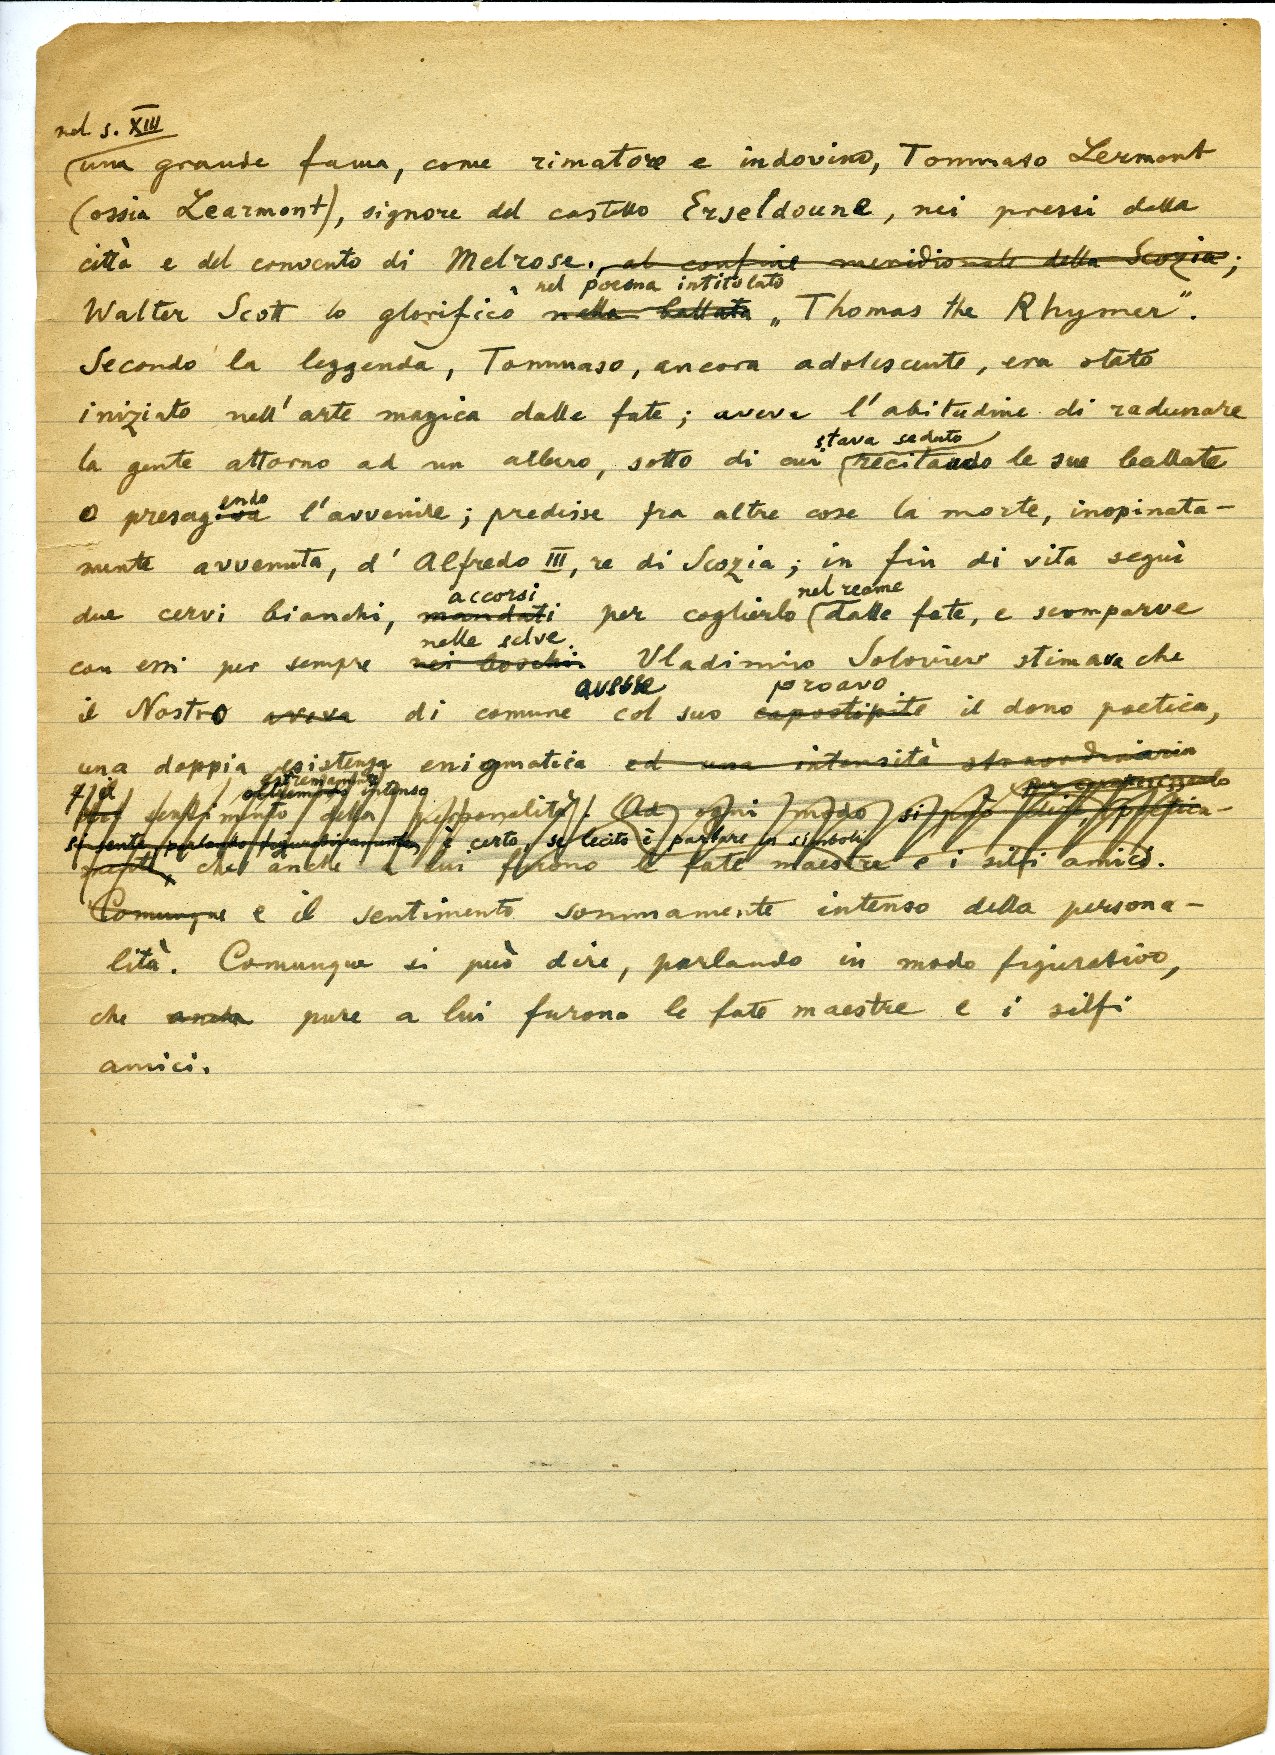 nel s. XIII
una grande fama, come rimatore e indovino, Tommaso Lermont
(ossia Learmont), signore del castello Erseldoune, nei pressi della
città e del convento di Melrose. al confine meridionale della Scozia;
nel poema intitolato
Walter Scott lo glorificò nella ballata „Thomas the Rhymer".
Secondo la leggenda, Tommaso, ancora adolescente, era stato
iniziato nell'arte magica dalle fate; aveva l'abitudine di radunare
stava seduto
la gente attorno ad un albero, sotto di cui recitando le sue ballate
endo
o presagiva l'avvenire; predisse fra altre cose la morte, inopinata-
mente avvenuta, d'Alfredo III, re di Scozia; in fin di vita seguì
accorsi nel reame
due cervi bianchi, mandati per coglierlo dalle fate, e scomparve
nelle selve.
con essi per sempre nei boschi Vladimiro Soloview stimava che
avesse proavo
il Nostro aveva di comune col suo capostipite il dono poetico,
una doppia esistenza enigmatica ed una intensità straordinaria
il estremamente intenso
sentimento della personalità. Ad ogni modo si può dire, poetica-
parlando figurativamente, è certo, se lecito è parlare in simboli
mente, che anche a lui furono le fate maestre e i silfi amici.
Comunque e il sentimento sommamente intenso della persona-
lità. Comunque si può dire, parlando in modo figurativo,
che anche pure a lui furono le fate maestre e i silfi
amici.